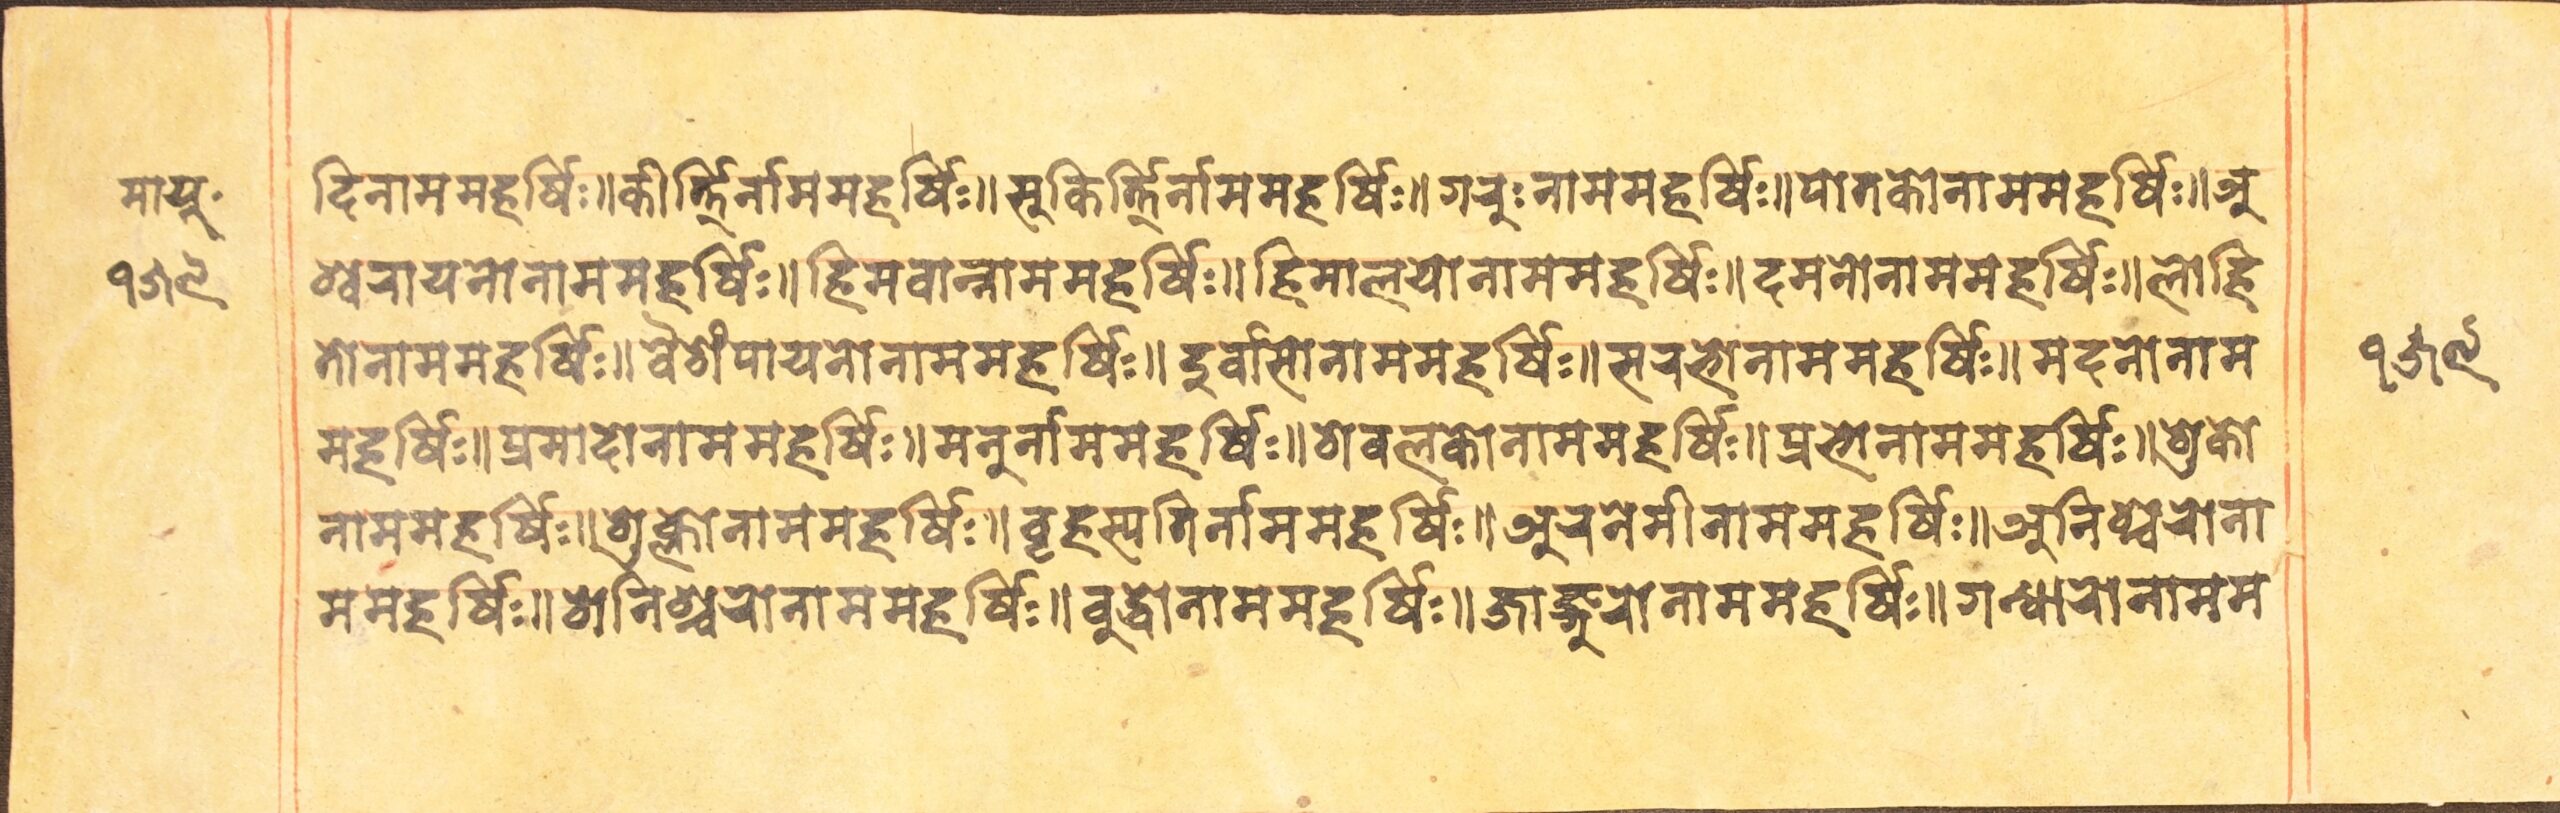 मायू॰
१७९
दिनाममहर्षिः॥कीर्त्तिर्नाममहर्षिः॥सुकिर्त्तिर्नाममहर्षिः॥गरुःनाममहर्षिः॥पोतकोनाममहर्षिः॥अ
श्वरायनोनाममहर्षिः॥हिमवान्नाममहर्षिः॥हिमालयोनाममहर्षिः॥दमनोनाममहर्षिः॥लोहि
तोनाममहर्षिः॥वैशंपायनोनाममहर्षिः॥दुर्वासोनाममहर्षिः॥सरभोनाममहर्षिः॥मदनोनाम
महर्षिः॥प्रमादोनाममहर्षिः॥मनुर्नाममहर्षिः॥शेवलकोनाममहर्षिः॥प्रभोनाममहर्षिः॥शुको
नाममहर्षिः॥शुक्लोनाममहर्षिः॥वृहस्पतिर्नाममहर्षिः॥अरनेमीनाममहर्षिः॥अनिश्वरोना
ममहर्षिः॥शनिश्चरोनाममहर्षिः॥बुद्धोनाममहर्षिः॥जाङ्गुरोनाममहर्षिः॥गन्धारोनामम
१७९